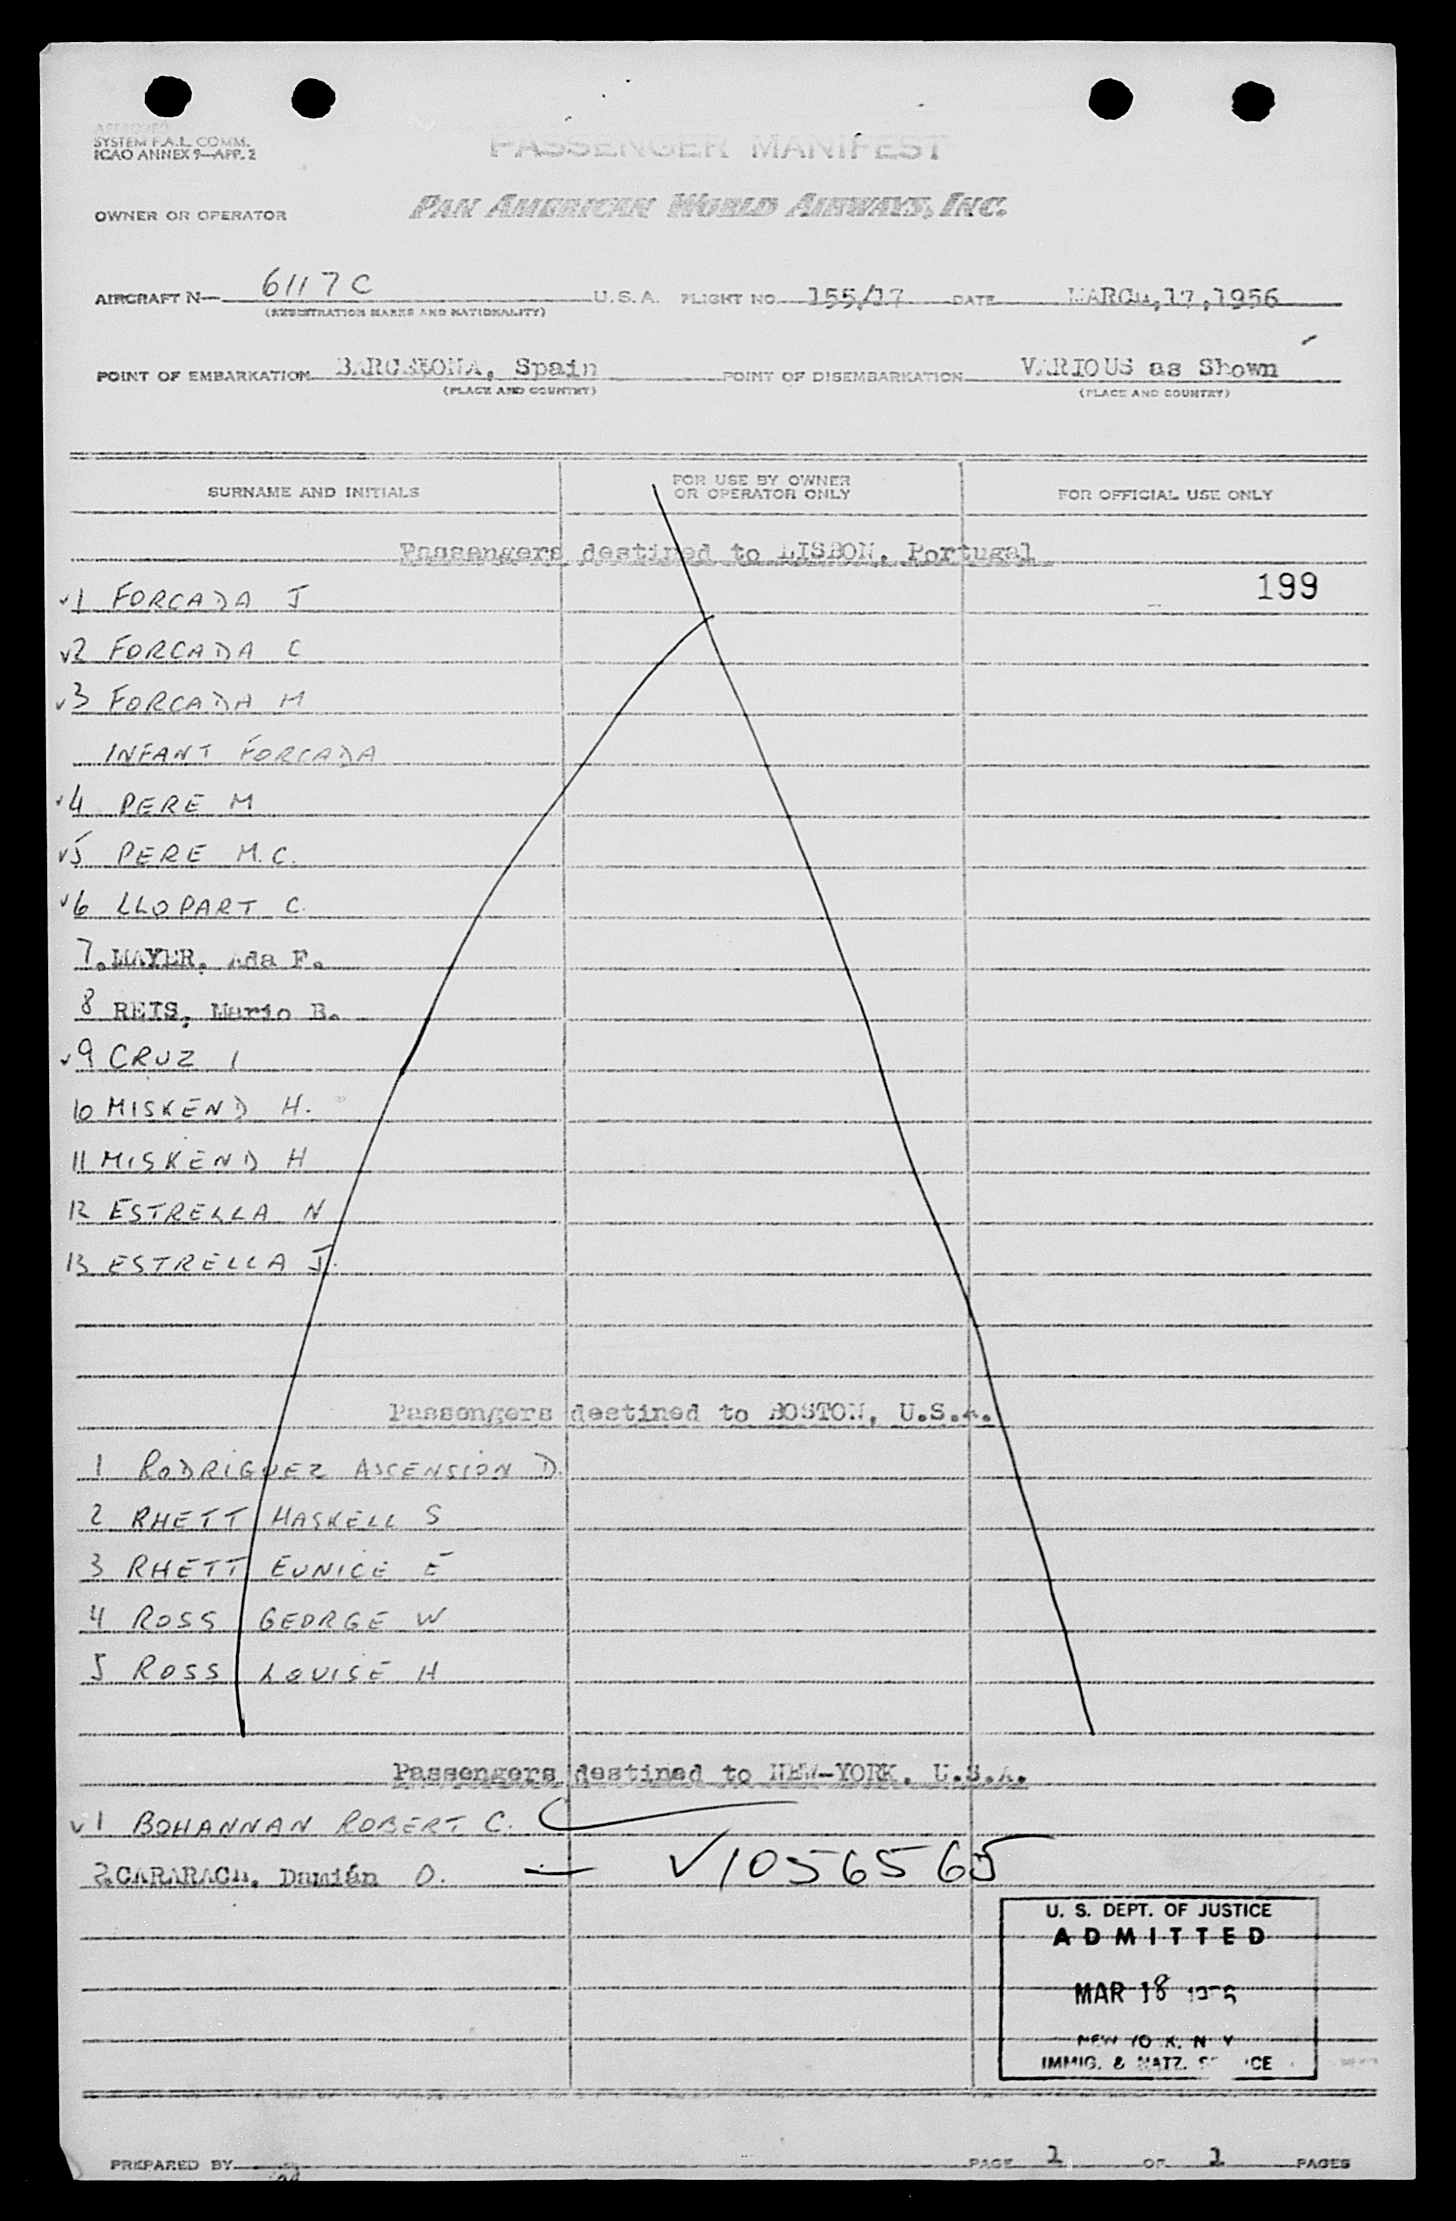 APPROVED
SYSTEM F.A.L. COMM.
ICAO ANNEX 9—APP. 2
PASSENGER MANIFEST
OWNER OR OPERATOR PAN AMERICAN WORLD AIRWAYS, INC.
AIRCRAFT N— 6117C U.S.A. FLIGHT NO. 155/17 DATE MARCH,17,1956
(REGISTRATION MARKS AND NATIONALITY)
POINT OF EMBARKATION BARCELONA, Spain POINT OF DISEMBARKATION VARIOUS as Shown
(PLACE AND COUNTRY) (PLACE AND COUNTRY)
SURNAME AND INITIALS FOR USE BY OWNER OR OPERATOR ONLY FOR OFFICIAL USE ONLY
Passengers destined to LISBON, Portugal
✓1 FORCADA J 199
✓2 FORCADA C
✓3 FORCADA M
INFANT FORCADA
✓4 PERE M
✓5 PERE M.C.
✓6 LLOPART C.
7. MAYER, Ada F.
8 REIS, Mario B.
✓9 CRUZ I
10 MISKEND H.
11 MISKEND H
12 ESTRELLA N
13 ESTRELLA J.
Passengers destined to BOSTON, U.S.A.
1 RODRIGUEZ ASCENSION D.
2 RHETT HASKELL S
3 RHETT EUNICE E
4 ROSS GEORGE W
5 ROSS LOUISE H
Passengers destined to NEW-YORK, U.S.A.
✓1 BOHANNAN ROBERT C.
2. CARARACH, Damián O. — ✓1056565
U. S. DEPT. OF JUSTICE
ADMITTED
MAR 18 1956
NEW YORK, N.Y.
IMMIG. & NATZ. SERVICE
PREPARED BY PAGE 1 OF 1 PAGES